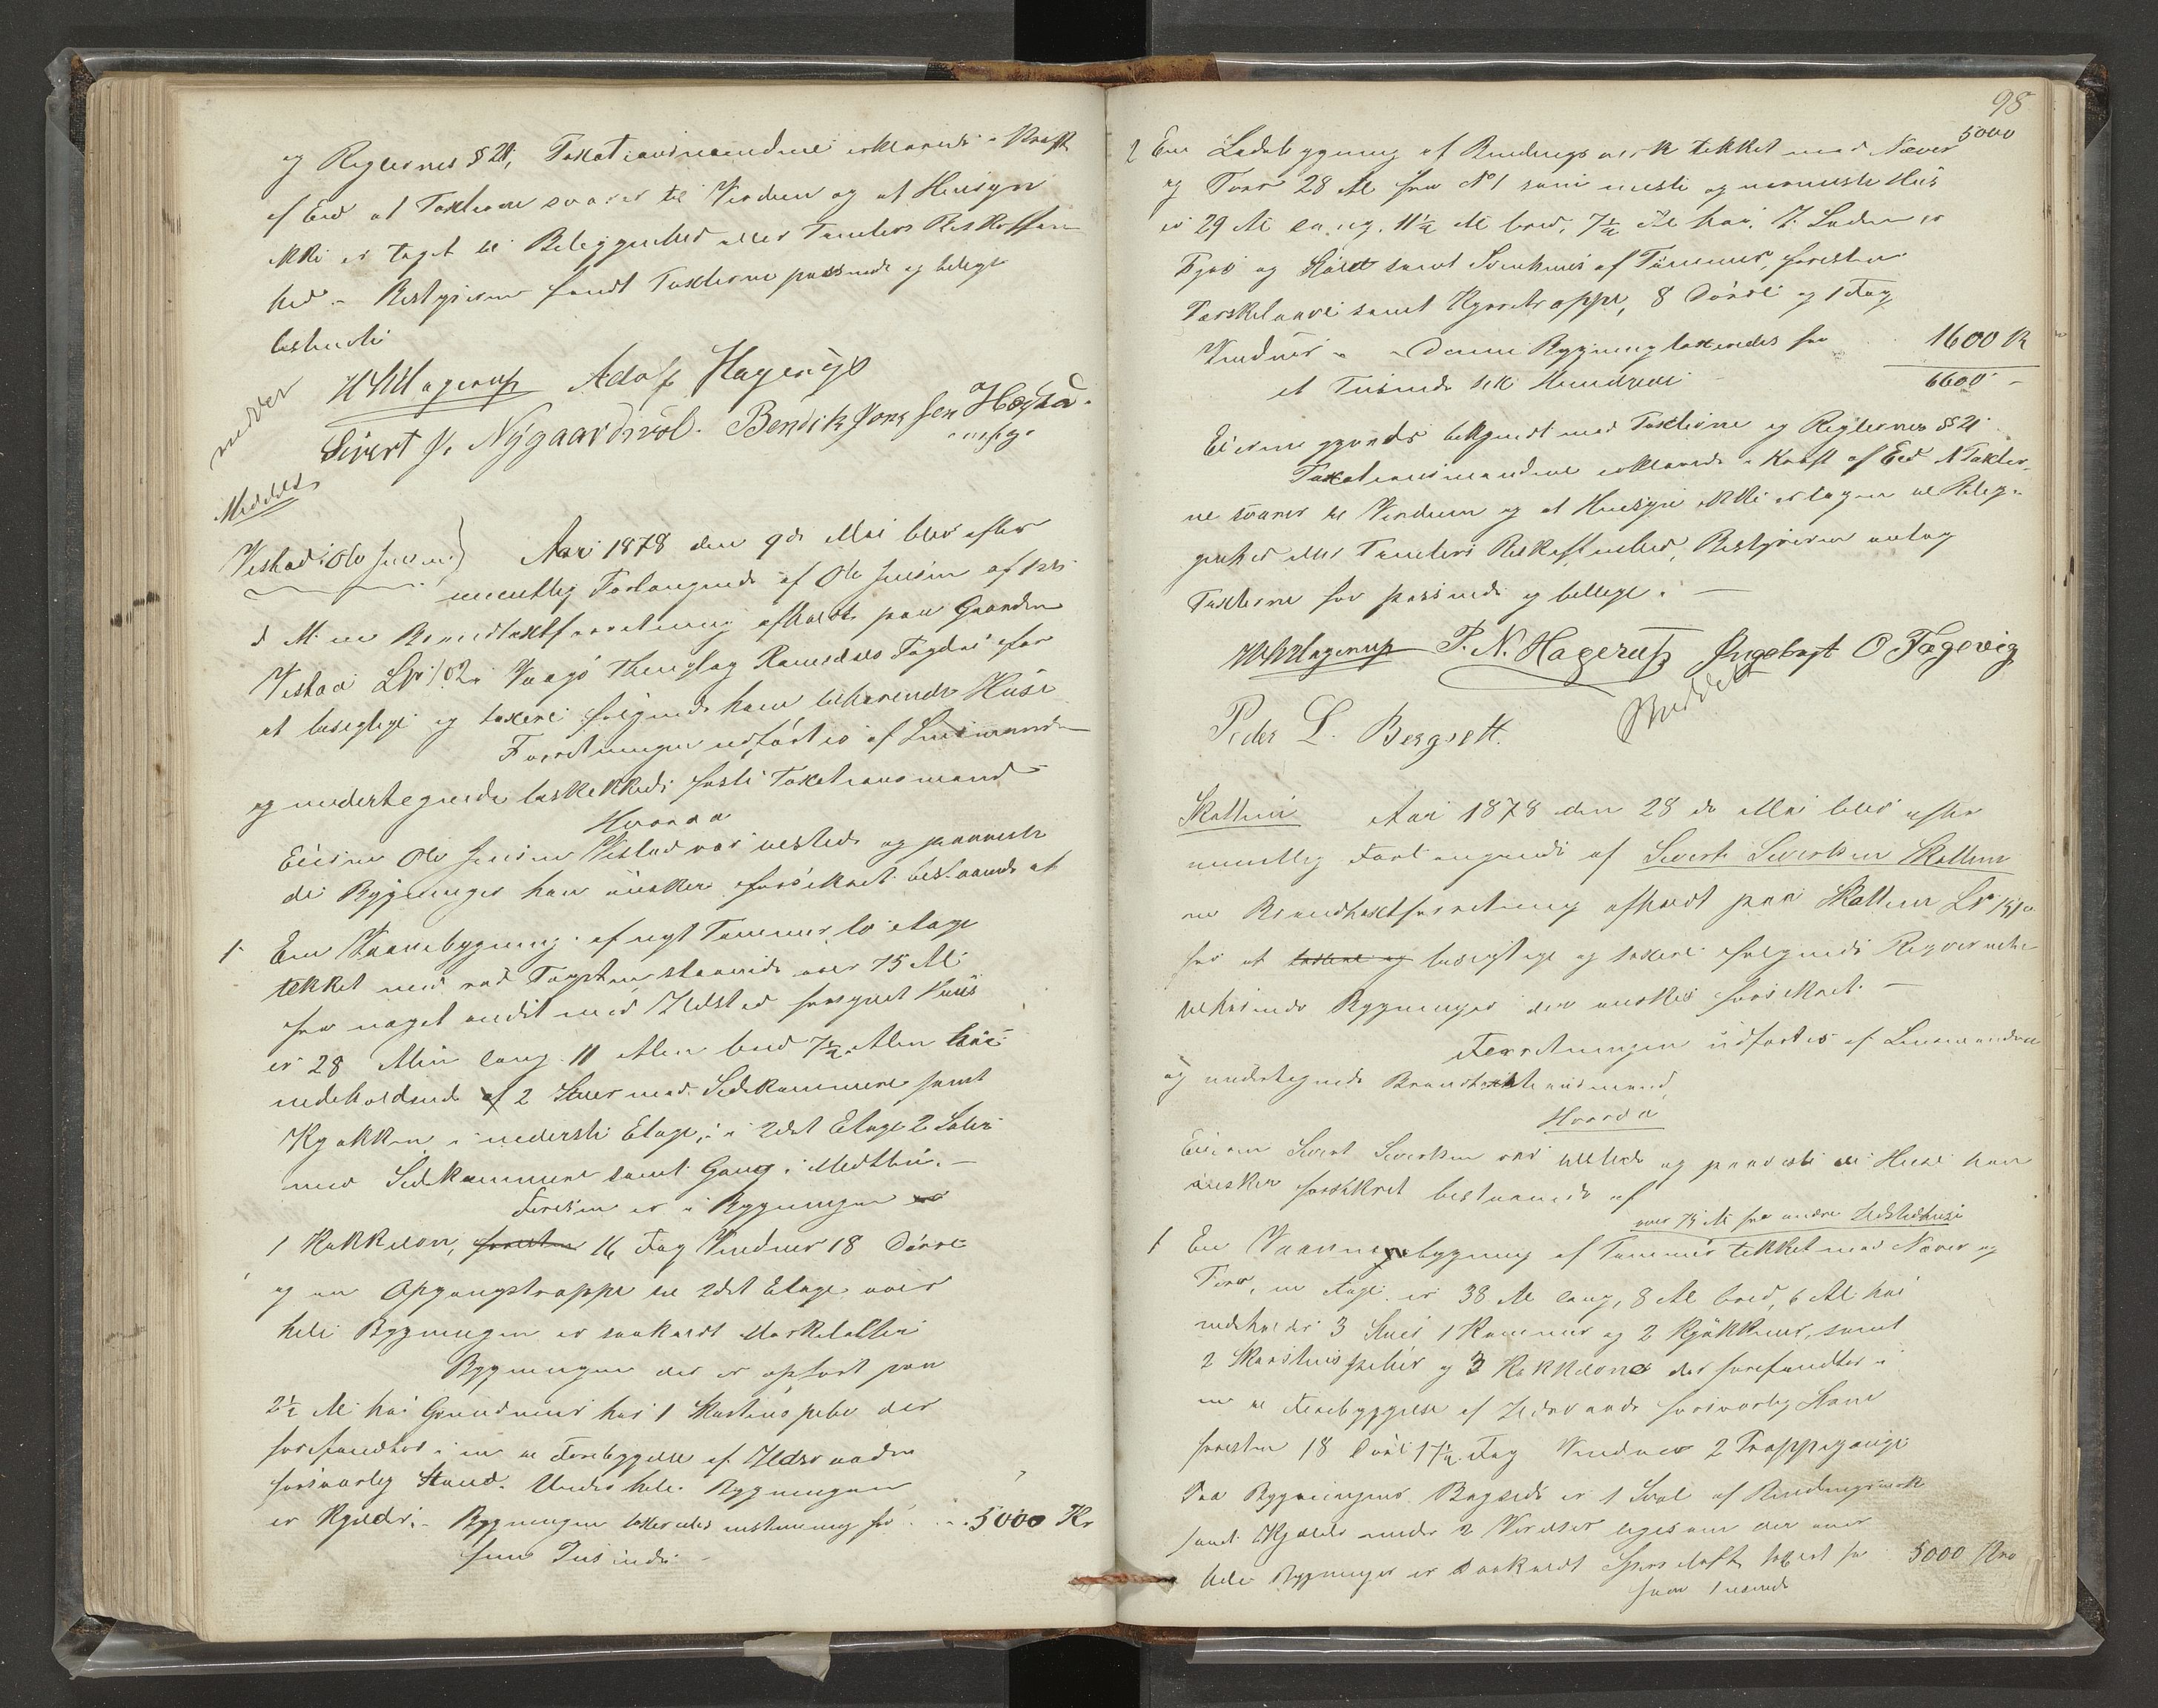 og Reglernes § 21, Taxationsmændene erklærede i Kraft
af Eed at Taxterne svarer til Værdien og at Hensyn
ikke er taget til Beliggenhed eller Tomters Beskaffen
hed. Bestyreren fandt Taxterne passende og belige
bestemte
WHHagerup Adolf Hagerup
Sivert J. Nygaardsvol. Bendik Jonsen
m.f.p.
Meddelt
Vestad Ole Jensen) Aar 1878 den 9de Mai blev efter
mundtlig Forlangende af Ole Jensen af 1ste
d. M. en Brandtaxtforretning afholdt paa Gaarden
Vestad LN 102 i Vaagø Thinglag Romsdals Fogderi for
at besigtige og taxere følgende ham tilhørende Huse
Forretningen udførtes af Lensmanden
og undertegnede beskikkede faste Taxationsmænd
Hvorda
Eieren Ole Jensen Vestad var tilstede og paaviste
de Bygninger han ønsker forsikret bestaaende af
1 En Vaanebygning af nyt Tømmer, to etage
tækket med rød Tagsten, staaende over 75 Al.
fra noget andet med Ildsted forsynet Huus
er 28 Alen lang 11 Alen bred 7½ Alen høi
indeholdende af 2 Stuer med Sidekammere samt
Kjøkken i nederste Etage, i 2det Etage 2 Saler
med Sidekammere samt Gang i Midten. —
Foruden er i Bygningen
1 Kakkelovn, foresten 16 Fag Vinduer 18 Dørre
og en Opgangstrappe til 2det Etage over
hele Bygningen er saakaldt Mørkelofter
Bygningen der er opført paa
2½ Al. høi Grundmuur har 1 Skorsteenspibe der
forefandtes i en til Forebyggelse af Ildsvaade
forsvarlig Stand. Under hele Bygningen
er Kjelder. Bygningen taxeredes enstemmig for 5000 Kr
fem Tusinde
98
5000
2 En Ladebygning af Bindingsverk tækket med Næver
og Torv 28 Al fra No 1 som neste og nærmeste Hus
er 29 Al lang, 11½ Al bred, 7½ Al høi. I Laden er
Fjøs og Stald samt Svinehuus af Tømmer, foresten
Tærskelaave samt Kjøretrappe, 8 Dørre og 1 Fag
Vinduer — Denne Bygning taxeredes for 1600 Kr
et Tusinde sex Hundrede 6600 -
Eieren gjordes bekjendt med Taxterne og Reglernes § 21
Taxationsmændene erklærede i Kraft af Eed at Taxter-
ne svarer til Værdien og at Hensyn ikke er tagen til Belig-
genhed eller Tomters Beskaffenhed, Bestyreren antog
Taxterne for passende og billige. —
WHHagerup P. N. Hagerup Ingebrigt O Fagervig
Peder L. Bergsett. Meddelt
Skotten Aar 1878 den 28 de Mai blev efter
mundtlig Forlangende af Sivert Sivertsen Skotten
en Brandtaxtforretning afholdt paa Skotten LN
for at taxere og besigtige og taxere følgende Reqvirenten
tilhørende Bygninger der ønskes forsikret. —
Forretningen udførtes af Lensmanden
og undertegnede Brandtaxtationsmænd
Hvorda
Eieren Sivert Sivertsen var tilstede og paaviste de Huse han
ønsker forsikret bestaaende af
over 75 Al fra andre Ildstedhuse
1 En Vaaningsbygning af Tømmer tækket med Næver og
Torv, en Etage er 38 Al lang, 8 Al bred, 6 Al høi
indeholder 3 Stuer 1 Kammer og 2 Kjøkkener, samt
2 Skorsteinspiber og 3 Kakkelovne der forefandtes i
en til Forebyggelse af Ildsvaade forsvarlig Stand
foresten 18 Døre 17½ Fag Vinduer 2 Trappegange
Paa Bygningens Bagside er 1 Sval af Bindingsverk
samt Kjelder under 2 Værelser ligesom der over
hele Bygningen er saakaldt Sperreloft taxert for 5000 Kro
fem Tusinde